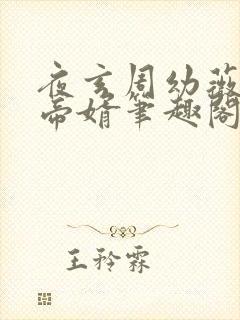 夜玄周幼薇
帝婿笔趣阁
王矜霖